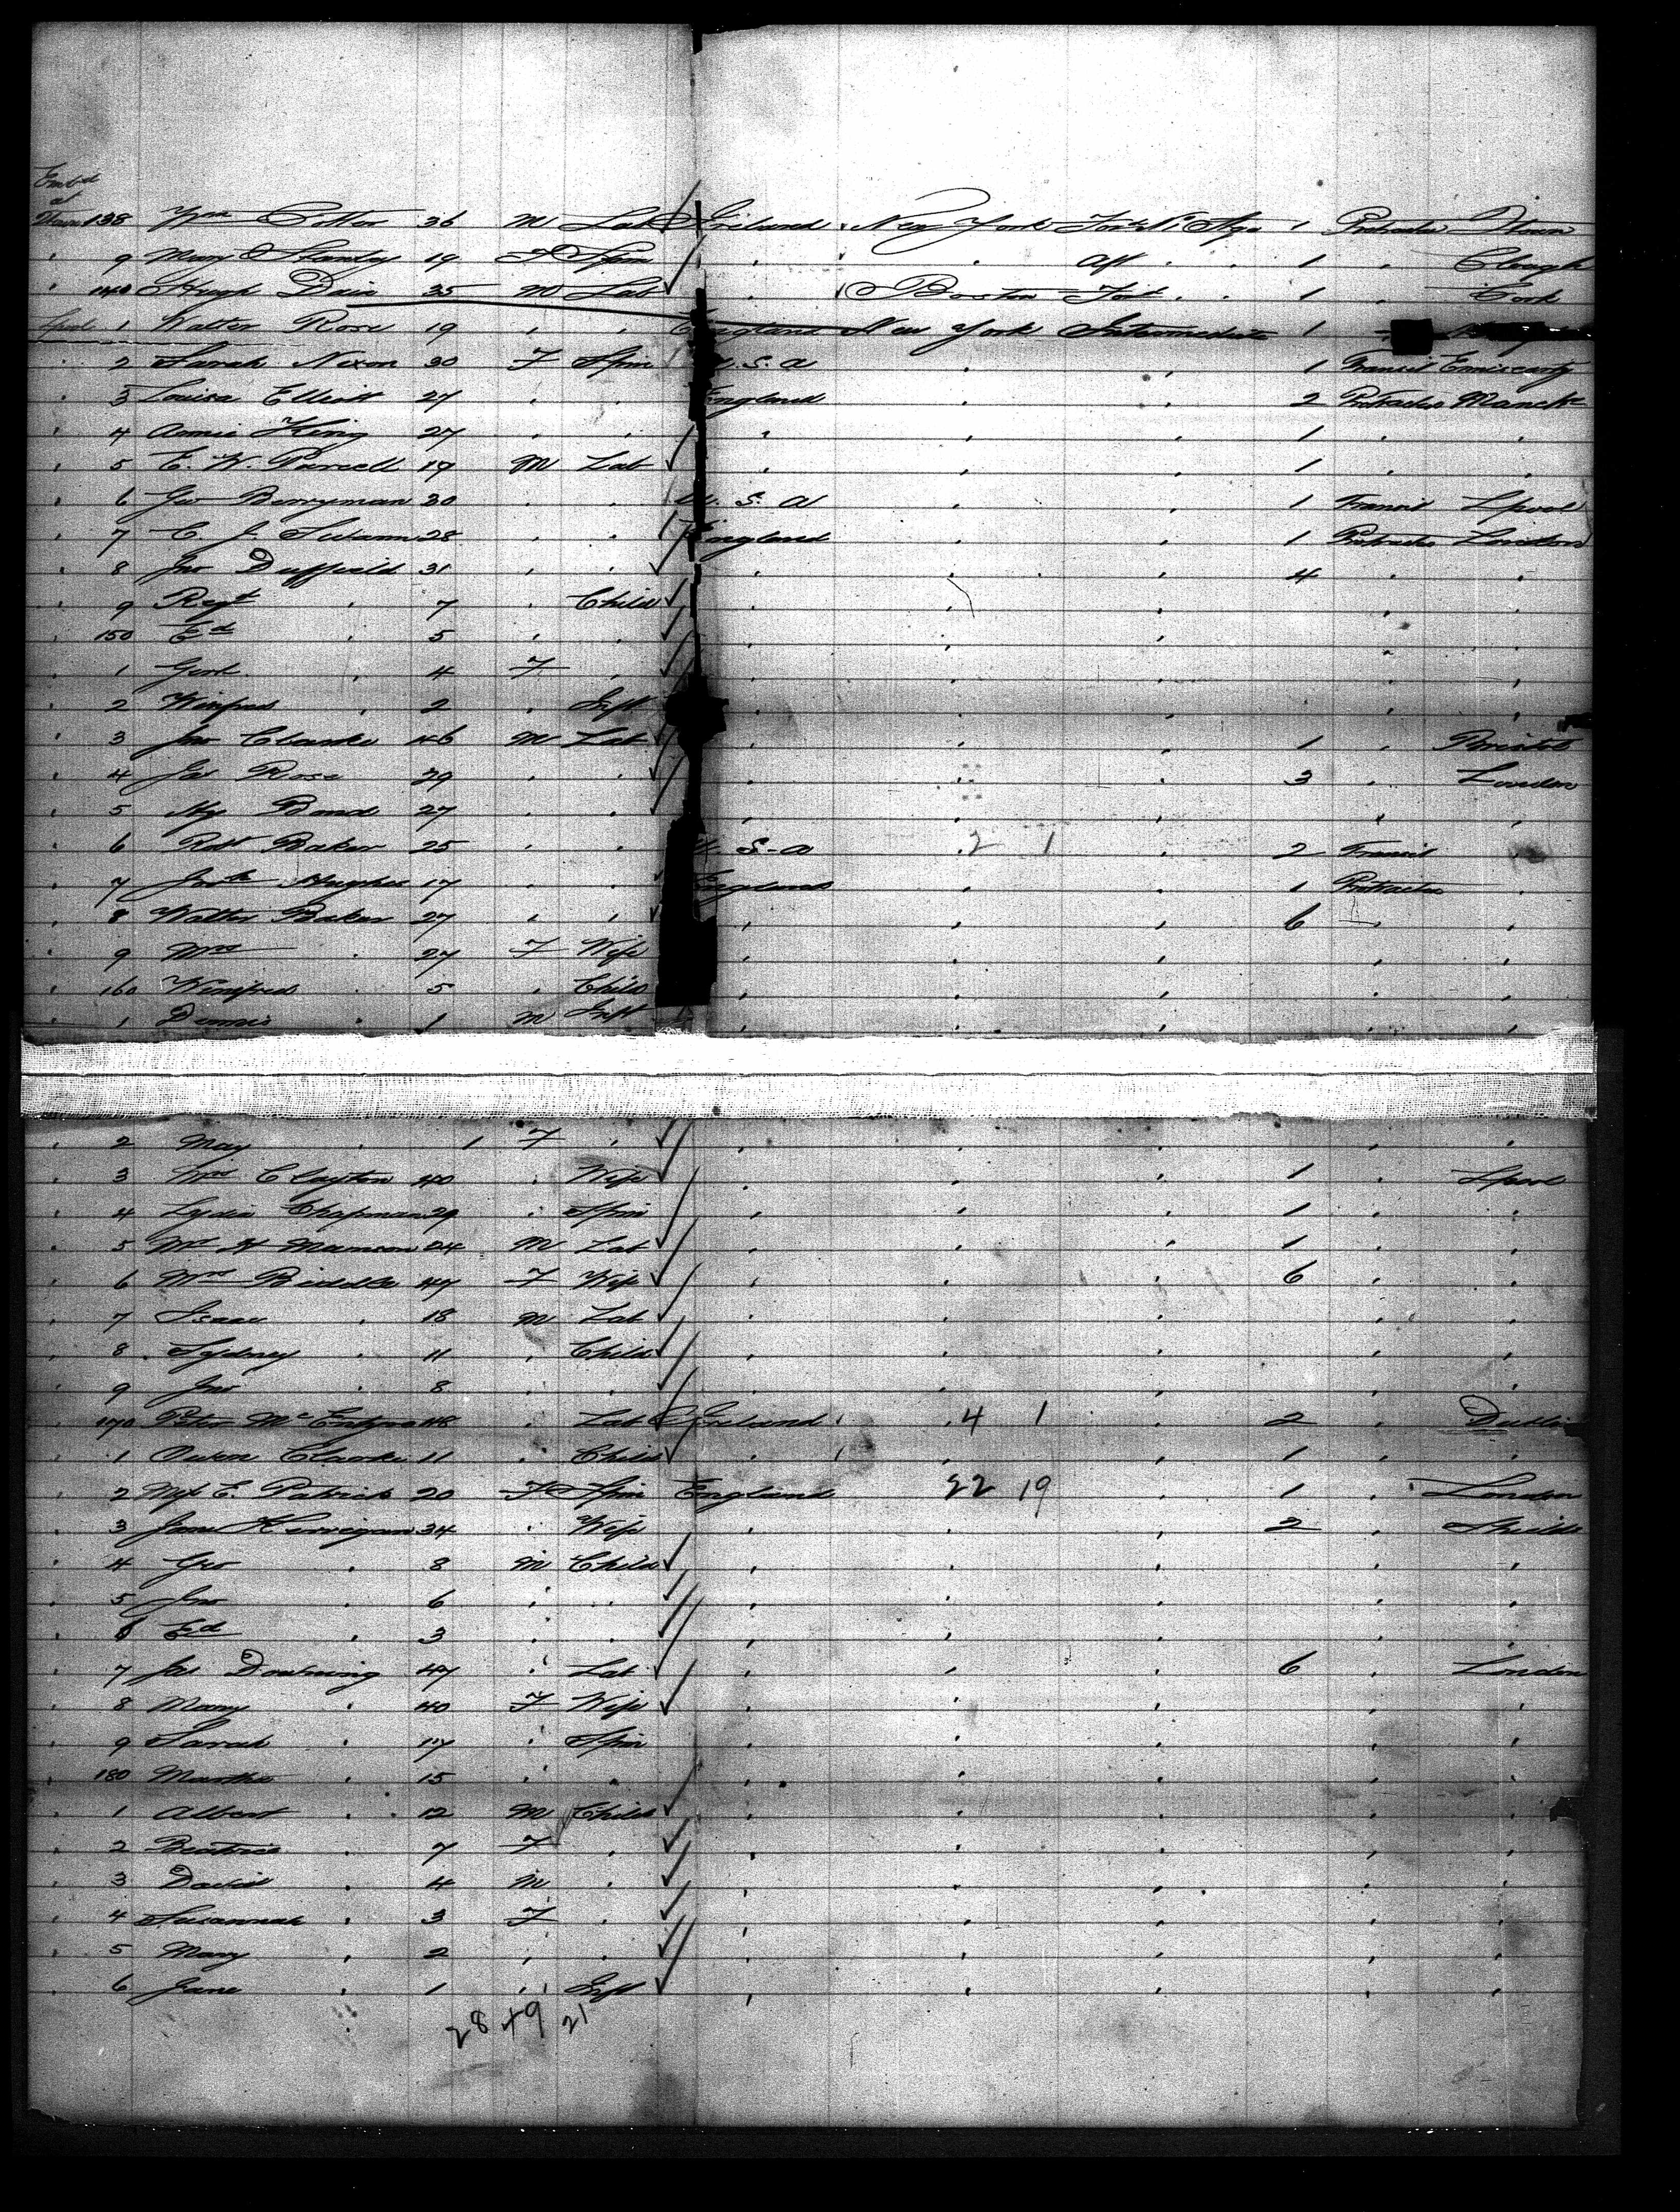 Emb'd
at
138 Wm Cotter 36 M Lab Ireland New York 1 Protracted
9 Mary 19 F Spin " " Aft " " 1 " Clough
140 Hugh 35 M Lab " Boston " " 1 " Cork
Lpool 1 Walter Rose 19 " " England New York Intermediate 1
" 2 Sarah Nixon 30 F Spin U.S.A " " 1 Transit Enniscorthy
" 3 Louisa Elliott 27 " " England " " 2 Protracted Manchr
" 4 Annie King 27 " " " " " 1 " "
" 5 E. W. Purcell 19 M Lab " " " 1 " "
" 6 Geo Berryman 30 " " U.S.A " " 1 Transit Lpool
" 7 C. J. 28 " " England " " 1 Protracted London
" 8 Jno Duffield 31 " " " " " 4 " "
" 9 Regt " 7 " Child " " " " "
" 150 Ed " 5 " " " " " " "
" 1 Gert " 4 F " " " " " "
" 2 Winfred " 2 " Inft " " " " "
" 3 Jno Clarke 46 M Lab " " " 1 " Bristol
" 4 Jas Rose 29 " " " " " 3 " London
" 5 Hy Bond 27 " " " " " " "
" 6 Robt Baker 25 " " U.S.A " 2 1 " 2 Transit "
" 7 Hughes 17 " " England " " 1 Protracted "
" 8 Walter Baker 27 " " " " " 6 " "
" 9 Mrs " 27 F Wife " " " " "
" 160 Winifred " 5 " Child " " " " "
" 1 Dennis " 1 M Inft " " " " "
" 2 May " 1 F " " " " " "
" 3 Mrs Clayton 40 " Wife " " " 1 " Lpool
" 4 Lydia Chapman 29 " Spin " " " 1 " "
" 5 Mr H Manson 24 M Lab " " " 1 " "
" 6 Mrs Biddle 47 F Wife " " " 6 " "
" 7 Isaac " 18 M Lab " " " " "
" 8 Sydney " 11 " Child " " " " "
" 9 Jno " 8 " " " " " " "
" 170 Peter 48 " Lab Ireland " 4 1 " 2 " Dublin
" 1 Owen Clarke 11 " Child " " " 1 " "
" 2 Miss E. Patrick 20 F Spin England 22 19 " 1 " London
" 3 Jane Kerrigan 34 " Wife " " " 2 " Shields
" 4 Geo " 8 M Child " " " " "
" 5 Jno " 6 " " " " " " "
" 6 Ed " 3 " " " " " " "
" 7 Jas Downing 47 " Lab " " " 6 " London
" 8 Mary " 40 F Wife " " " " "
" 9 Sarah " 17 " Spin " " " " "
" 180 Martha " 15 " " " " " " "
" 1 Albert " 12 M Child " " " " "
" 2 Beatrice " 7 F " " " " " "
" 3 David " 4 M " " " " " "
" 4 Susannah " 3 F " " " " " "
" 5 Mary " 2 " " " " " " "
" 6 Jane " 1 " Inft " " " " "
28 49 21